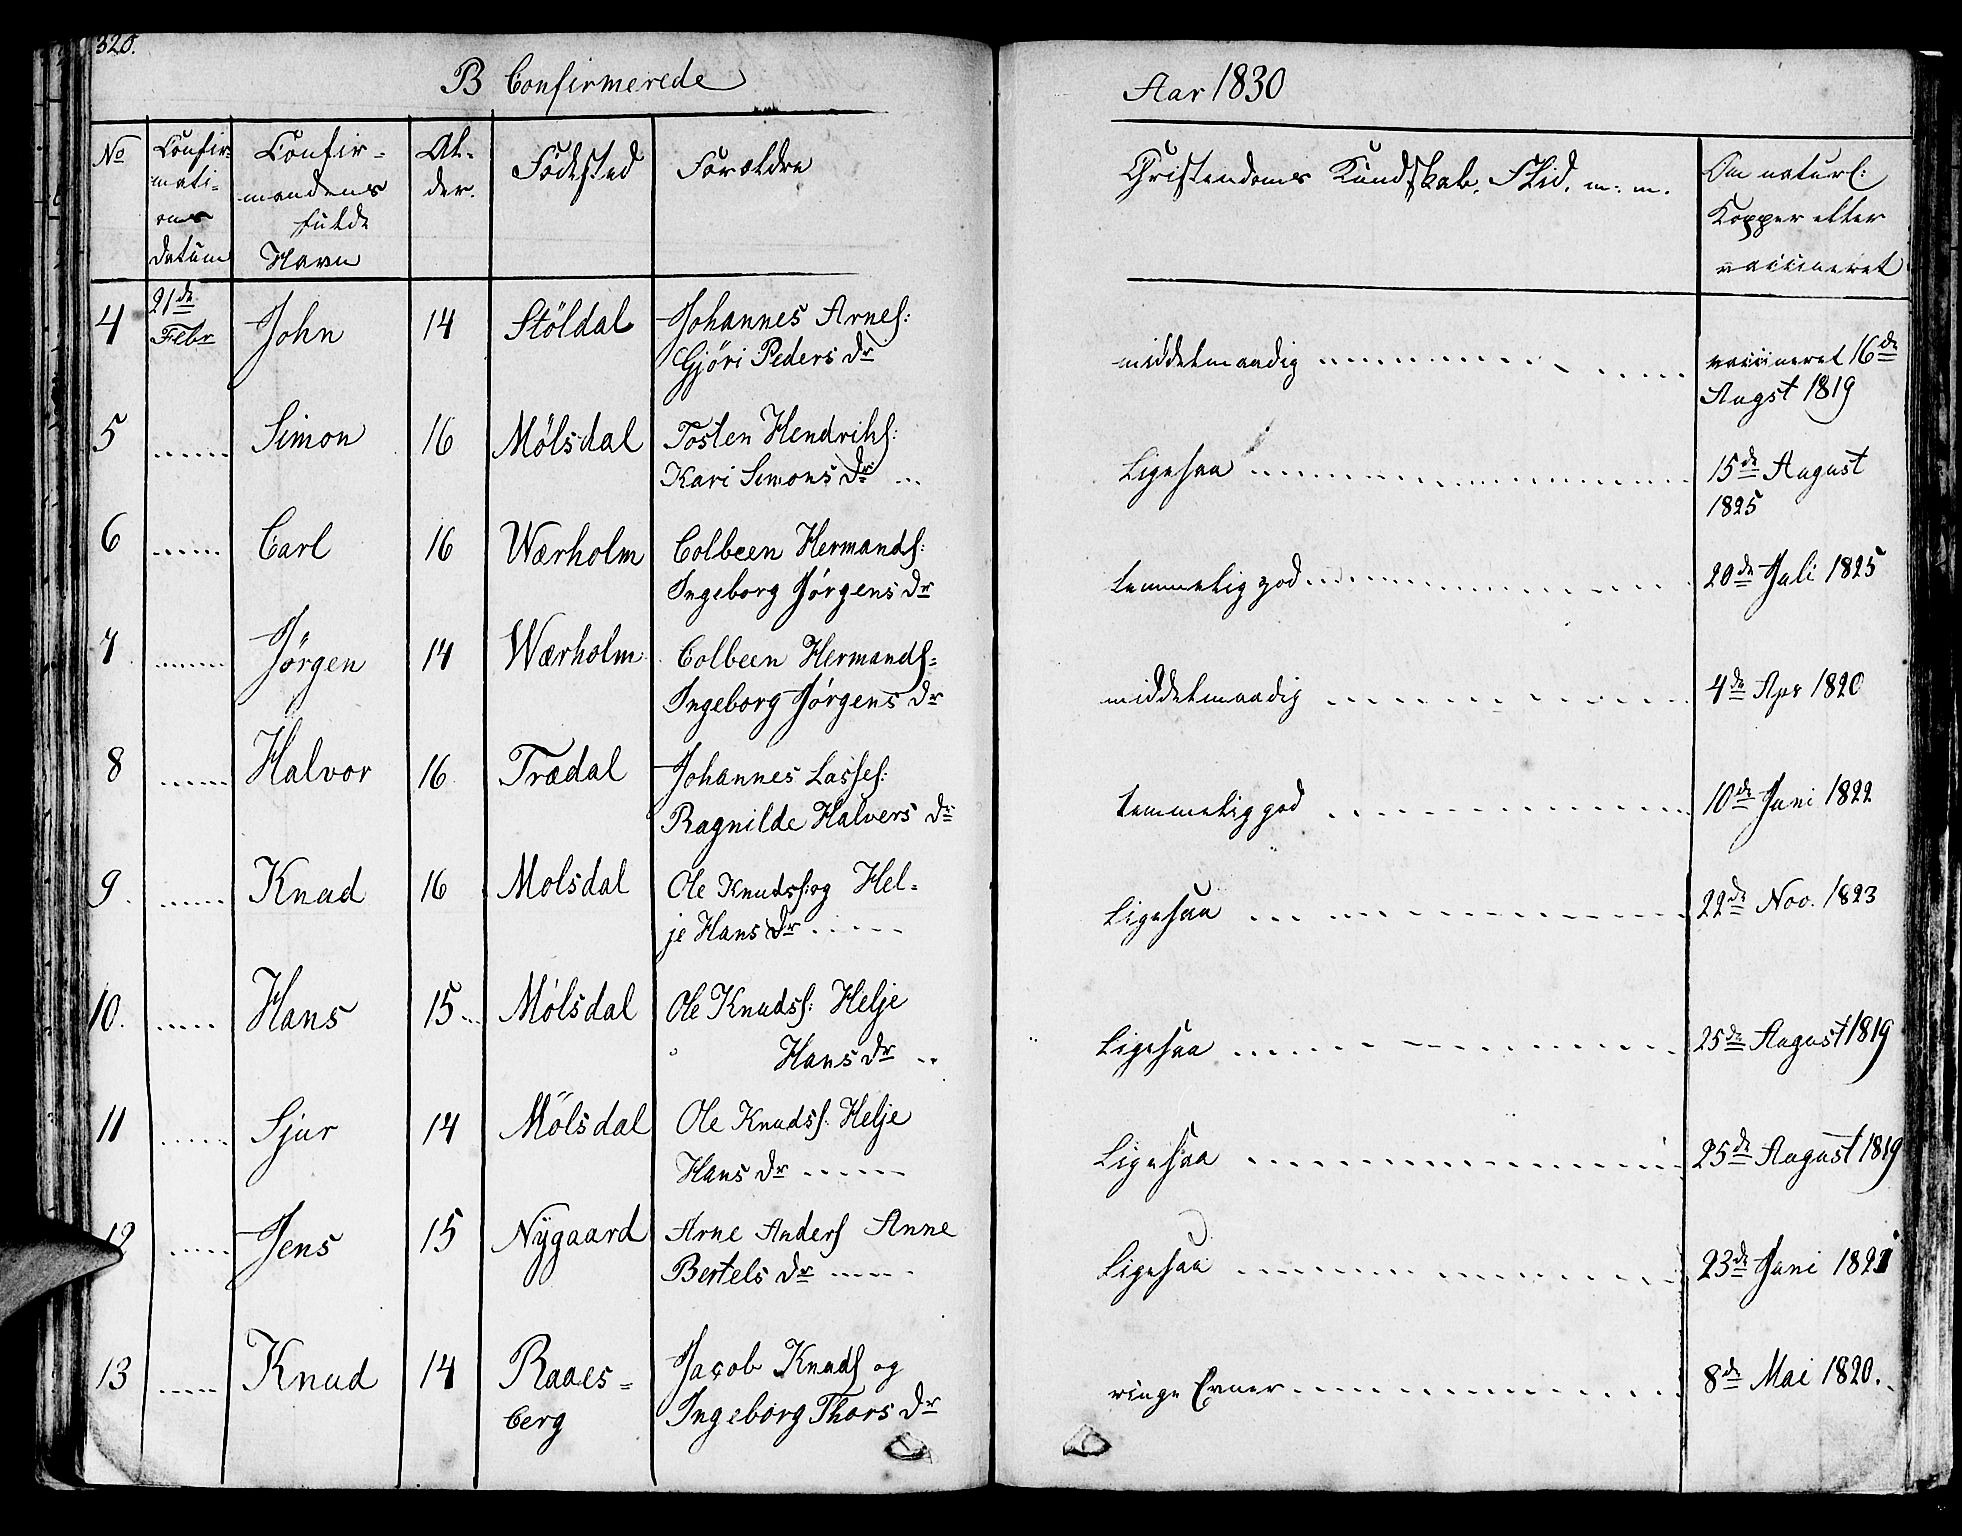 320.
B Confirmerede
Aar 1830
No
Confir-
mati-
ons
Datum
Confir-
mandens
fulde
Navn
Al-
der.
Fødested
Forældre
Christendoms Kundskab, Flid, m: m.
Om naturl:
Kopper eller
vaccineret
4 21de Febr John 14 Stöldal Johannes Arnes:
Gjöri Peders Dr middelmaadig vaccineret 16de
Augst 1819
5 Simon 16 Mølsdal Tosten Hendriks:
Kari Simons Dr Ligesaa 15de August
1825
6 Carl 16 Wærholm Colbeen Hermands:
Ingeborg Jørgens Dr temmelig god 20de Juli 1825
7 Jørgen 14 Wærholm Colbeen Hermands:
Ingeborg Jørgens Dr middelmaadig 4de Apr 1820
8 Halvor 16 Trædal Johannes Lasses:
Ragnilde Halvers Dr temmelig god 10de Juni 1822
9. Knud 16 Molsdal Ole Knuds: og Hel-
je Hans Dr Ligesaa 22de Nov. 1823
10. Hans 15 Mølsdal Ole Knuds: Helje
Hans Dr Ligesaa 25de August 1819
11 Sjur 14 Mölsdal Ole Knuds: Helje
Hans Dr Ligesaa 25de August 1819
12 Jens 15 Nÿgaard Arne Anders Anne
Bertels Dr Ligesaa 23de Juni 1821
13 Knud 14 Raaes-
berg Jacob Knuds og
Ingeborg Thors Dr ringe Evner 8de Mai 1820.